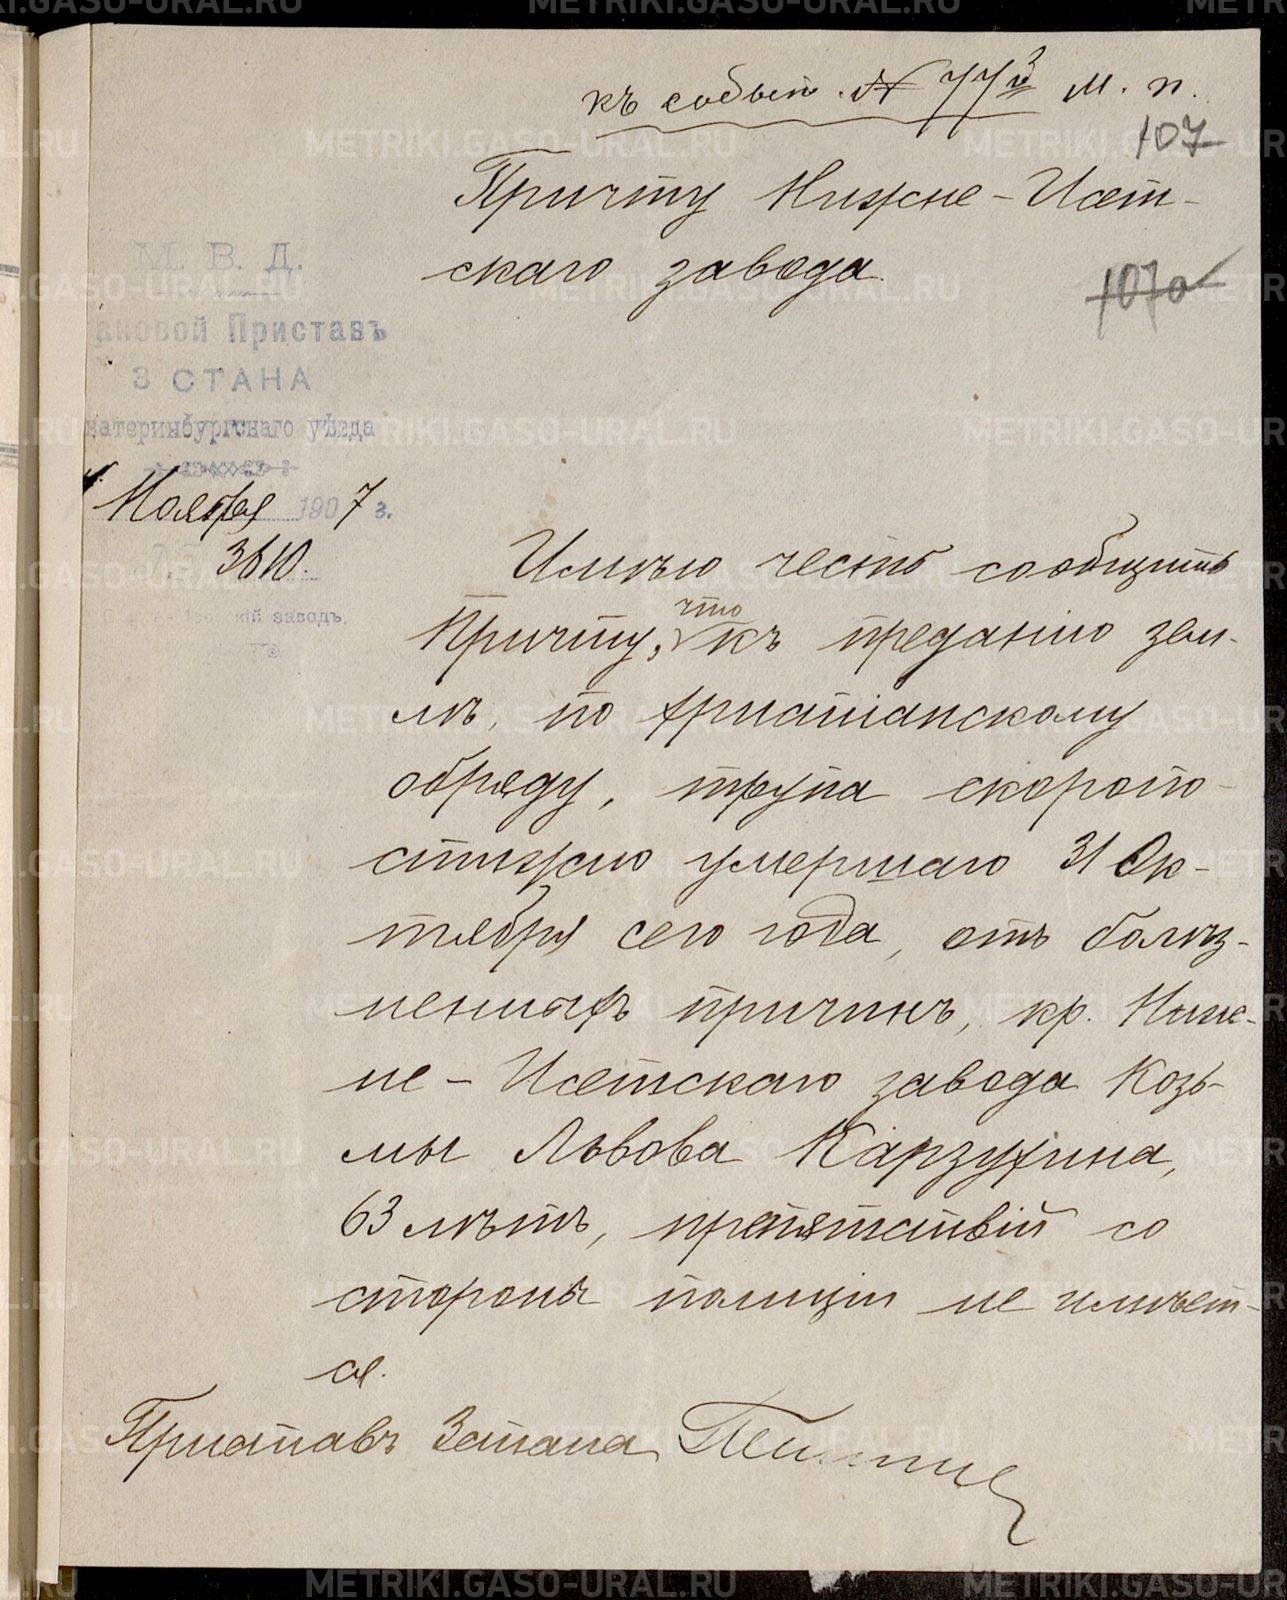 къ событ. № 77 м. п.
107
Причту Нижне-Исет-
скаго завода.
107о
М. В. Д.
ановой Приставъ
3 СТАНА
катеринбургскаго уѣзда
Ноября 1907 г.
3610.
завовдъ,
Имѣю честь сообщить
Причту, что къ преданію зем-
лѣ, по христіанскому
обряду, трупа скоропо-
стижно умершаго 31 Ок-
тября сего года, отъ болѣз-
ненныхъ причинъ, кр. Ниж-
не-Исетскаго завода Козь-
мы Львова Карзухина,
63 лѣтъ, препятствій со
стороны полиціи не имѣет-
ся.
Приставъ 3 стана
METRIKI.GASO-URAL.RU